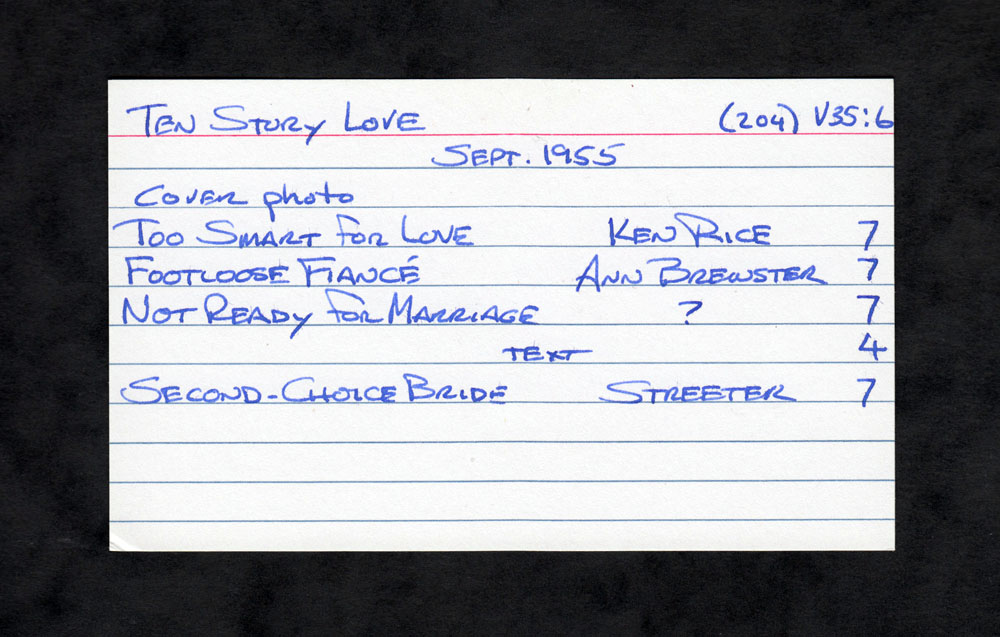 Ten Story Love (204) V35:6
Sept. 1955
Cover photo
Too Smart for Love Ken Rice 7
Footloose Fiancé Ann Brewster 7
Not Ready for Marriage ? 7
text 4
Second-Choice Bride Streeter 7